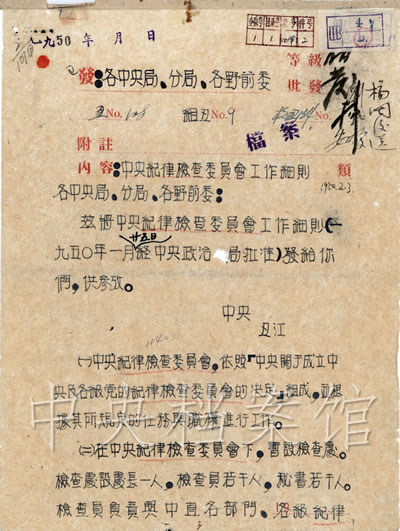 一九50年 月 日
等級
發:各中央局、分局、各野前委
批發
丑No. 128 組丑No. 9
附註
檔案
内容:中央紀律檢查委員會工作細則
類
1950.2.3.
各中央局、分局、各野前委:
兹将中央紀律檢查委員會工作細則(一
九五〇年一月廿五日經中央政治局批准)發給你
們,供參攷。
中央
丑江
(一)中央紀律檢查委員會,依照「中央關于成立中
央及各級党的紀律檢查委員會的决定」組成,並根
據其所規定的任務與職權進行工作。
(二)在中央紀律檢查委員會下,暫設檢查處。
檢查處設處長一人,檢查員若干人,秘書若干人。
檢查員負責與中直各部門、各級紀律
中央档案馆